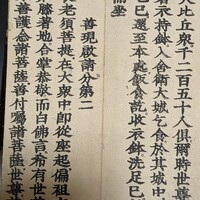 大比丘衆千二百五十人俱爾時世尊
著衣持鉢入舍衛大城乞食於其城中
乞已還至本處飯食訖收衣鉢洗足已
而坐
善現啟請分第二
老須菩提在大衆中即從座起偏袒
膝著地合掌恭敬而白佛言希有世
善護念諸菩薩善付囑諸菩薩世尊